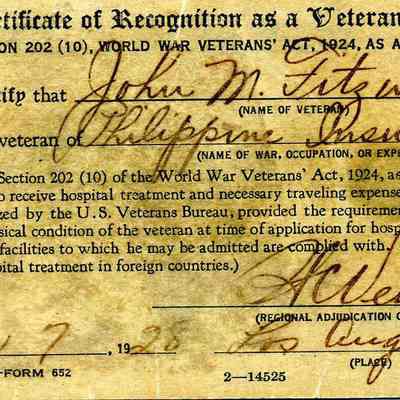 tificate of Recognition as a Veteran
ON 202 (10), WORLD WAR VETERANS' ACT, 1924, AS A
ify that John M. Fitz
(NAME OF VETERAN)
veteran of Philippine Insu
(NAME OF WAR, OCCUPATION, OR EXPE
Section 202 (10) of the World War Veterans' Act, 1924, as
o receive hospital treatment and necessary traveling expense
zed by the U.S. Veterans Bureau, provided the requirement
sical condition of the veteran at time of application for hosp
facilities to which he may be admitted are complied with.
pital treatment in foreign countries.)
(REGIONAL ADJUDICATION O
7, 192 Los Ang
(PLACE)
-FORM 652 2—14525